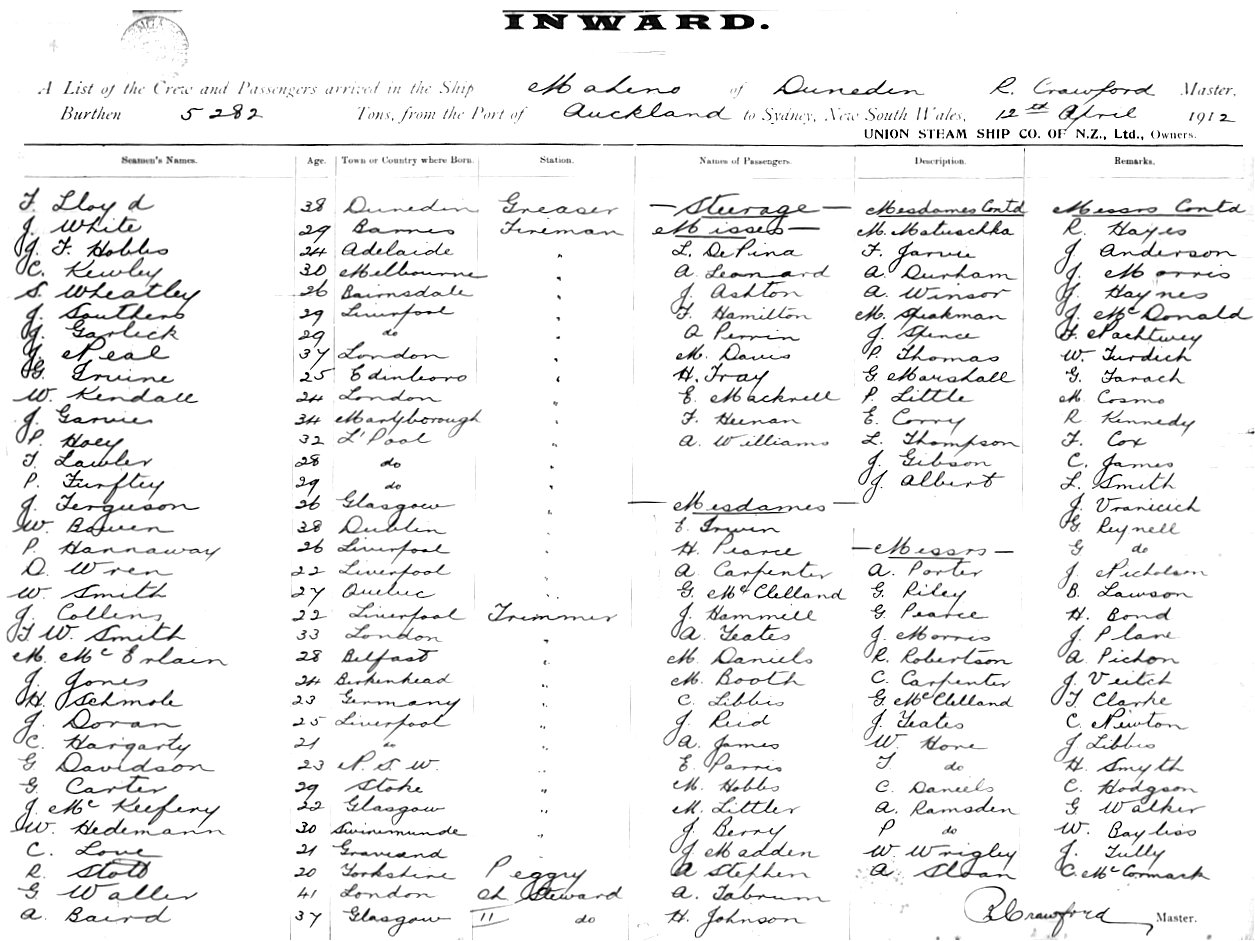 INWARD.
A List of the Crew and Passengers arrived in the Ship Maheno of Dunedin R. Crawford Master,
Burthen 5282 Tons, from the Port of Auckland to Sydney, New South Wales, 12th April 1912
UNION STEAM SHIP CO. OF N.Z., Ltd., Owners.
Seamen's Names. Age. Town or Country where Born. Station. Names of Passengers. Description. Remarks.
F. Lloyd 38 Dunedin Greaser — Steerage — Mesdames Contd Messrs Contd
J. White 29 Barnes Fireman Misses — M. Matuschka R. Hayes
J. F. Hobbs 24 Adelaide " L. De Pina F. Jarvie J. Anderson
C. Kewley 30 Melbourne " A. Leonard A. Durham J. Morris
S. Wheatley 26 Bairnsdale " J. Ashton A. Winsor J. Haynes
J. Southers 29 Liverpool " F. Hamilton M. Speakman J. McDonald
J. Garlick 29 do " A Perrin J. Spence F. Pachtwey
J. Neal 37 London " M. Davis P. Thomas W. Turdich
G. Irvine 25 Edinboro " H. Tray G. Marshall G. Tarach
W. Kendall 24 London " E. Macknell P. Little M Cosmo
J. Garvies 34 Maryborough " F. Heenan E. Corry R Kennedy
P. Hoey 32 L'Pool " A. Williams L. Thompson F. Cox
T. Lawler 28 do " J. Gibson C. James
P. Furftey 29 do " J. Albert L. Smith
J. Ferguson 26 Glasgow " — Mesdames — J. Vranicich
W. Bowen 38 Dublin " E. Irwin G. Reynell
P. Hannaway 26 Liverpool " H. Pearce — Messrs — G do
D. Wren 22 Liverpool " A. Carpenter A. Porter J. Nicholson
W. Smith 27 Quebec " G. McClelland G. Riley B. Lawson
J. Collins 22 Liverpool Trimmer J. Hammill G. Pearce H. Bond
F W. Smith 33 London " A. Yeates J. Morris J. Plane
M. McErlain 28 Belfast " M. Daniels R. Robertson A. Pichon
J. Jones 24 Birkenhead " M. Booth C. Carpenter J. Veitch
H. Schmole 23 Germany " C. Libbis G. McClelland T. Clarke
J. Doran 25 Liverpool " J. Reid J. Yeates C. Newton
C. Hargarty 21 " " A. James W. Hore J Libbis
G Davidson 23 N. S W. " E. Parris T do H. Smyth
G. Carter 29 Stoke " M. Hobbs C. Daniels C. Hodgson
J. McKeefery 22 Glasgow " M. Littler A. Ramsden G Walker
W. Hedemann 30 Swinemunde " J. Berry P do W. Bayliss
C. Love 21 Gravesend J Madden W Wrigley J. Tully
R. Stott 20 Yorkshire Peggy A Stephen A. Sloan C. McCormack
G Waller 41 London Ch Steward A. Tabrum
A. Baird 37 Glasgow II do H. Johnson R Crawford Master.